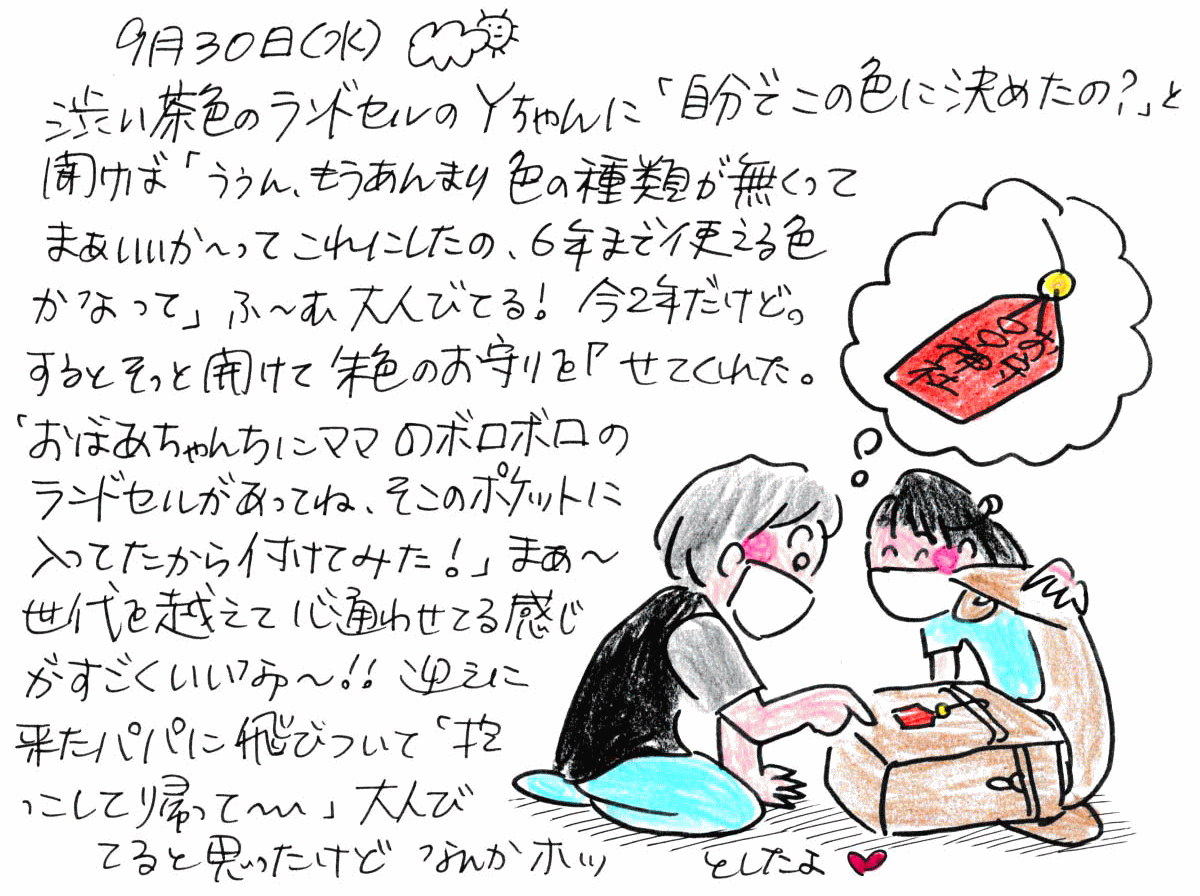 9月30日(水)
渋い茶色のランドセルのYちゃんに「自分でこの色に決めたの?」と
聞けば「ううん、もうあんまり色の種類が無くって
まあいいか〜ってこれにしたの、6年まで使える色
かなって」ふ〜む大人びてる!今2年だけど。
するとそっと開けて朱色のお守りを「せてくれた。
「おばあちゃんちにママのボロボロの
ランドセルがあってね、そこのポケットに
入ってたから付けてみた!」まぁ〜
世代を越えて心通わせてる感じ
がすごくいいなあ〜!!迎えに
来たパパに飛びついて「抱
っこしてり帰って〜〜」大人び
てると思ったけどなんかホッとしたよ
お守
〇〇神社